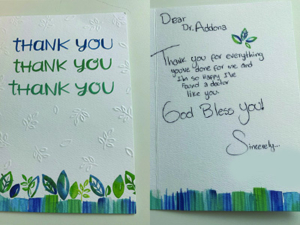 THANK YOU
THANK YOU
THANK YOU
Dear
Dr. Addona
Thank you for everything
you've done for me and
I'm so happy I've
found a doctor
like you.
God Bless You!
Sincerely...